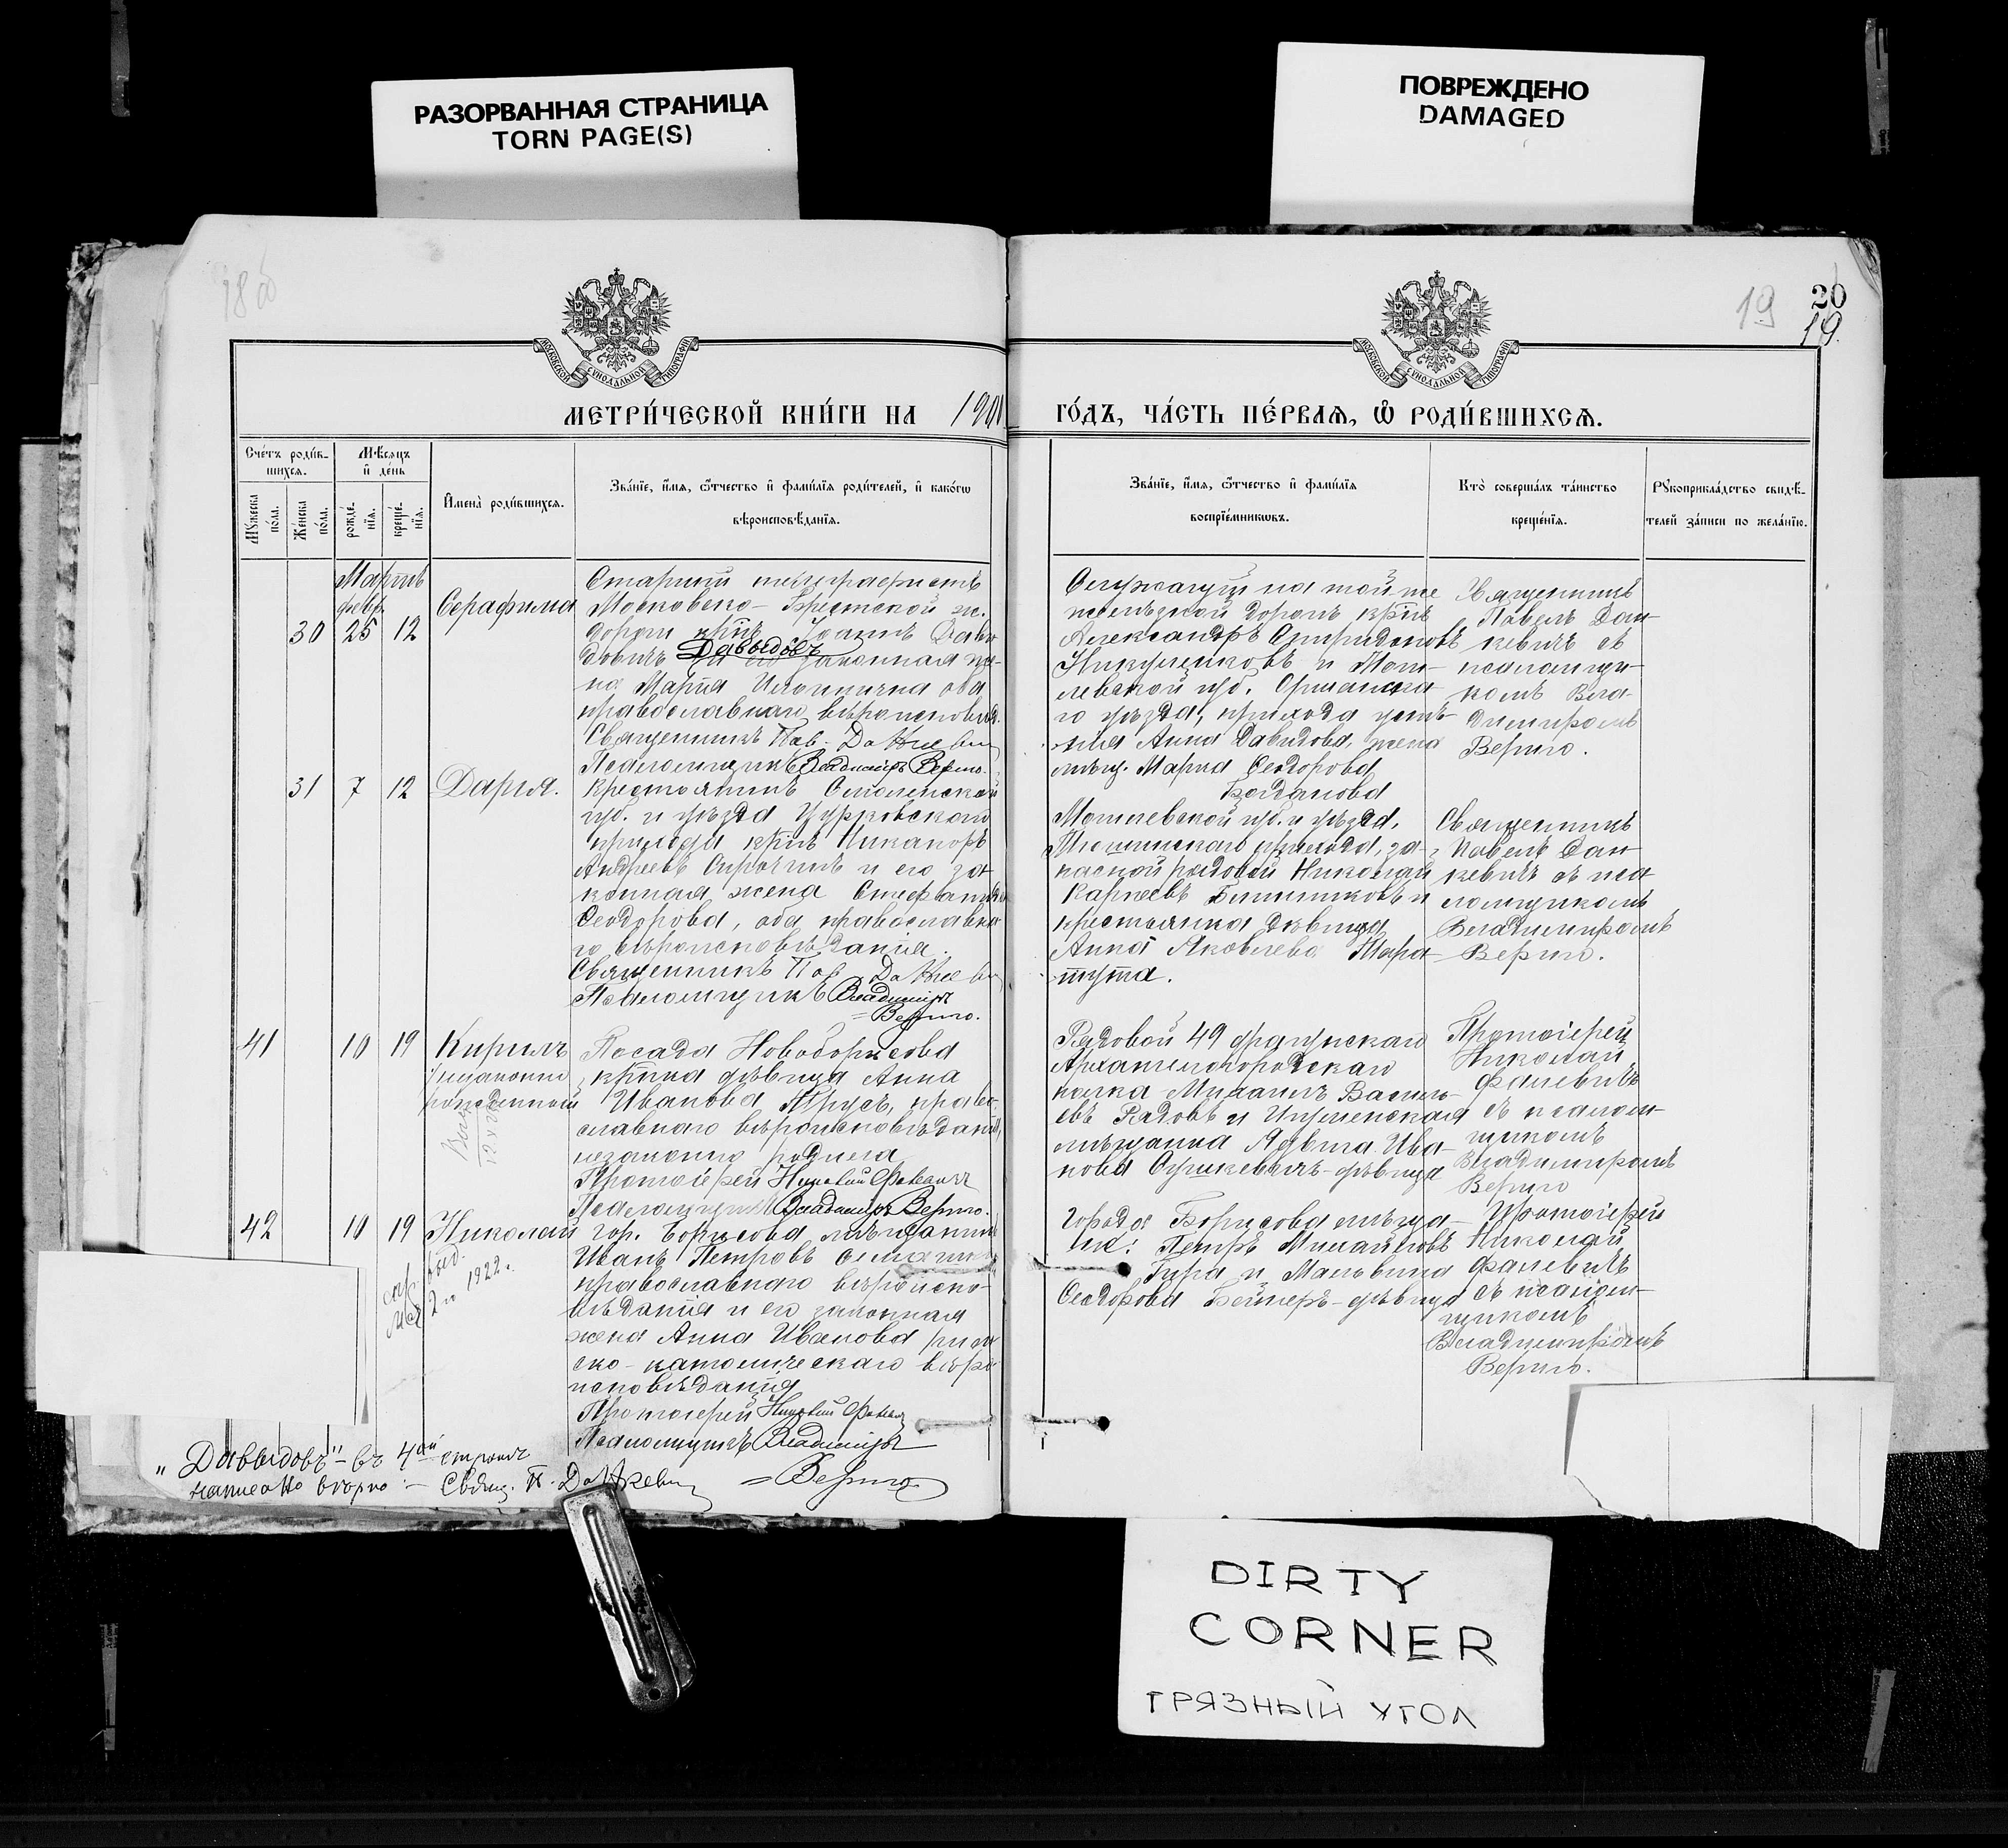 РАЗОРВАННАЯ СТРАНИЦА
TORN PAGE(S)
ПОВРЕЖДЕНО
DAMAGED
19
20
19.
МОСКОВСКОЙ СѴНОДАЛЬНОЙ ТИПОГРАФІИ
МОСКОВСКОЙ СѴНОДАЛЬНОЙ ТИПОГРАФІИ
МЕТРИ́ЧЕСКОЙ КНИ́ГИ НА 190
ГО́ДЪ, ЧА́СТЬ ПЕ́РВАѦ, Ѽ РОДИ́ВШИХСѦ.
Сче́тъ роди́в-
шихся.
Мѣсяцъ
и де́нь
Мꙋжеска
по́ла.
Же́нска
по́ла.
рожде́-
нїѧ.
креще́-
нїѧ.
Имена̀ роди́вшихся.
Зва́нїе, и́мѧ, ѻ́тчество и фами́лїѧ роди́телей, и како́гѡ
вѣроисповѣ́данїѧ.
Зва́нїе, и́мѧ, ѻ́тчество и фами́лїѧ
воспрїе́мникѡвъ.
Кто̀ соверша́лъ та́инство
креще́нїѧ.
Рꙋкоприкла́дство свидѣ́-
телей за́писи по жела́нїю.
Мартъ
февр.
30 25 12
Серафима
Старшій телеграфистъ
Московско-Брестской ж.
дороги крнъ Іоаннъ Давы
довичъ Давыдовъ и его законная же-
на Марія Иліинична оба
православнаго вѣроисповѣд.
Священникъ Пав. Данкевич
Псаломщикъ Владиміръ Вериго.
Служащій на той же
желѣзной дорогѣ крнъ
Александръ Спиридоновъ
и Моги-
левской губ. Оршанска-
го уѣзда, прихода
Анна Давидова, жена
мѣщ. Марія Ѳеодорова
Богданова
Священникъ
Павелъ Дан-
кевичъ съ
псаломщи-
комъ Вла-
диміромъ
Вериго.
31 7 12
Дарія.
Крестьянинъ Смоленской
губ. и уѣзда Цурковскаго
прихода крнъ Никаноръ
Андреевъ и его за-
конная жена Стефанида
Ѳеодорова, оба православна-
го вѣроисповѣданія.
Священникъ Пав. Данкевич
Псаломщикъ Владиміръ
Вериго.
Могилевской губ. и уѣзда,
прихода, за-
пасной рядовой Николай
Карпеевъ и
крестьянка дѣвица
Анна Яковлева Мара-
Священникъ
Павелъ Дан-
кевичъ съ пса
ломщикомъ
Владиміромъ
Вериго.
41 10 19
Кирилъ
незаконно
рожденный
Посада Новоборисова
кр-нка дѣвица Анна
Иванова право-
славнаго вѣроисповѣданія,
незаконно родила
Протоіерей Николай Фалевичъ
Псаломщикъ Владиміръ Вериго.
Рядовой 49 драгунскаго
Архангелогородскаго
полка Михаилъ Василь-
евъ и Игуменская
мѣщанка Ядвига Ива-
нова -дѣвица
Протоіерей
Николай
Фалевичъ
съ псалом-
щикомъ
Владиміромъ
Вериго
42 10 19
Николай
1922 г.
Гор. Борисова мѣщанинъ
Иванъ Петровъ
православнаго вѣроиспо-
вѣданія и его законная
жена Анна Иванова рим-
ско-католическаго вѣро
исповѣданія
Протоіерей Николай Фалевичъ
Псаломщикъ Владиміръ
Вериго
Города Борисова мѣща-
не: Петръ Михайловъ
и Мальвина
Ѳеодорова -дѣвица
Протоіерей
Николай
Фалевичъ
съ псалом-
щикомъ
Владиміромъ
Вериго.
„Давыдовъ"- въ 4ой строкѣ
написано вѣрно:- Свящ. П. Данкевич
DIRTY
CORNER
ГРЯЗНЫЙ УГОЛ